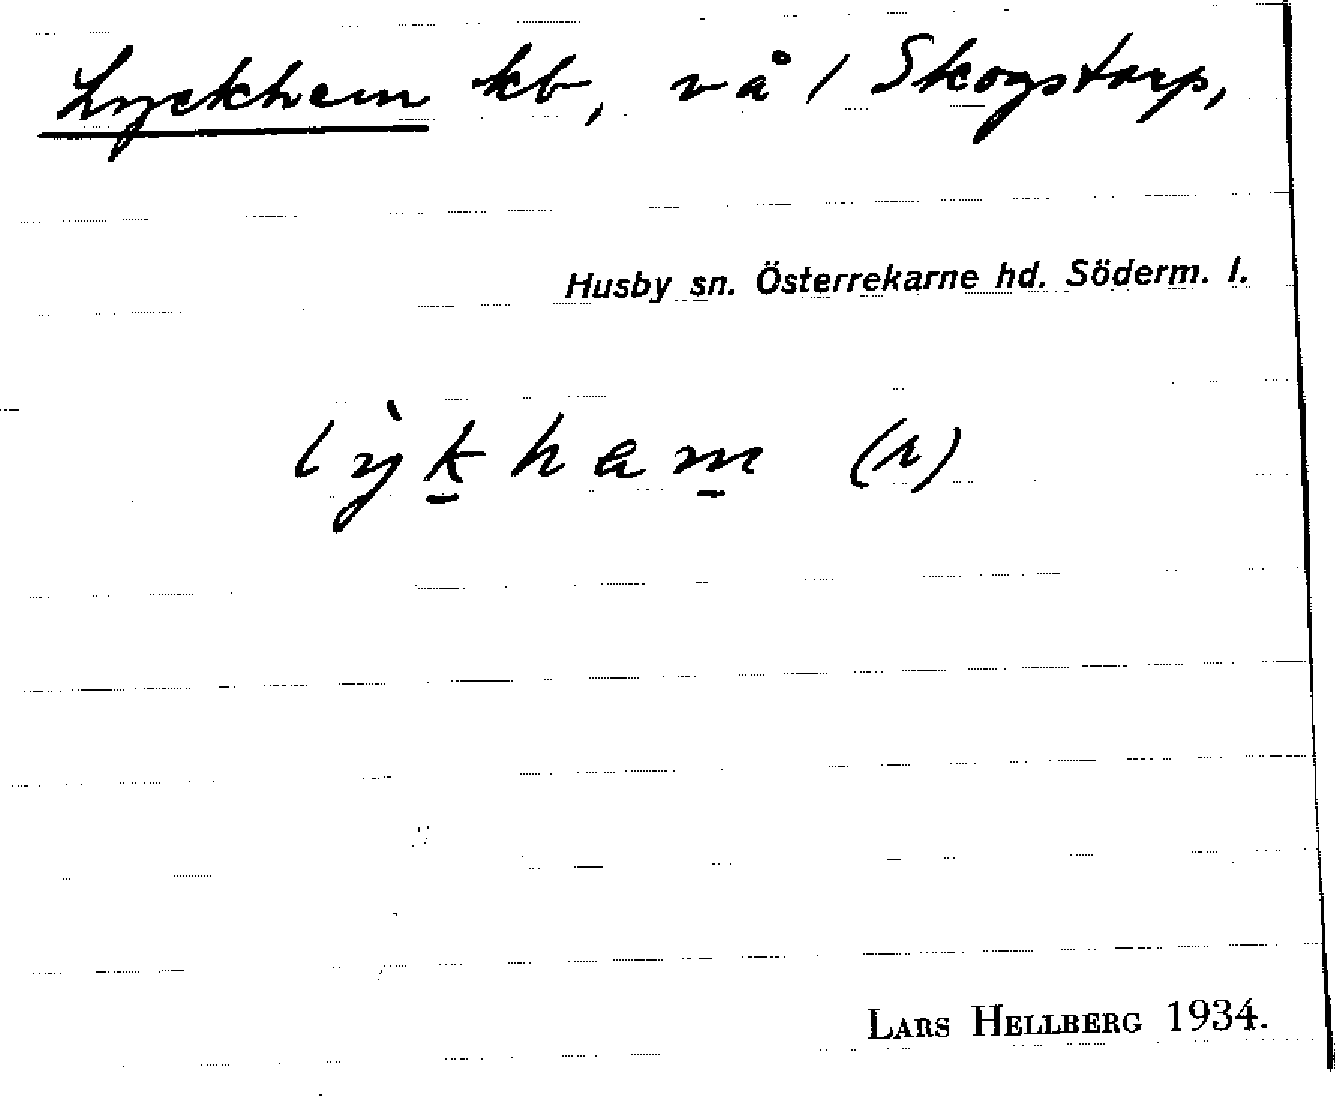 Lyckhem kb, vå / Skogstorp,
Husby sn. Österrekarne hd. Söderm. l.
lỳkham (r)
LARS HELLBERG 1934.